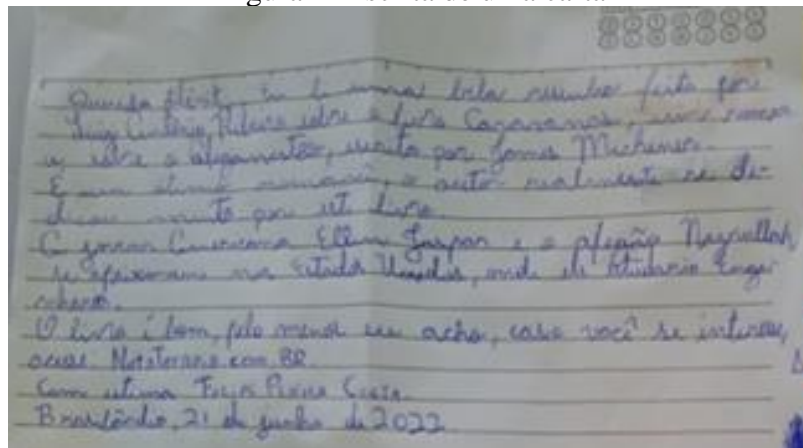 Querida
li uma bela resenha feita por
Luiz Antônio Ribeiro sobre o livro Caravanas, um roman
ce sobre o afeganistão, escrito por James Michener.
É um ótimo romance, o autor realmente se de-
dicou muito por este livro.
A jovem Americana Ellen Jaspar e o afegão Nazrullah
se apaixonam nos Estados Unidos, onde ele estudaria Enge
nharia.
O livro é bom, pelo menos eu acho, caso você se interesse,
acesse Notaterapia.com.BR
Com estima
Brasilândia, 21 de junho de 2022